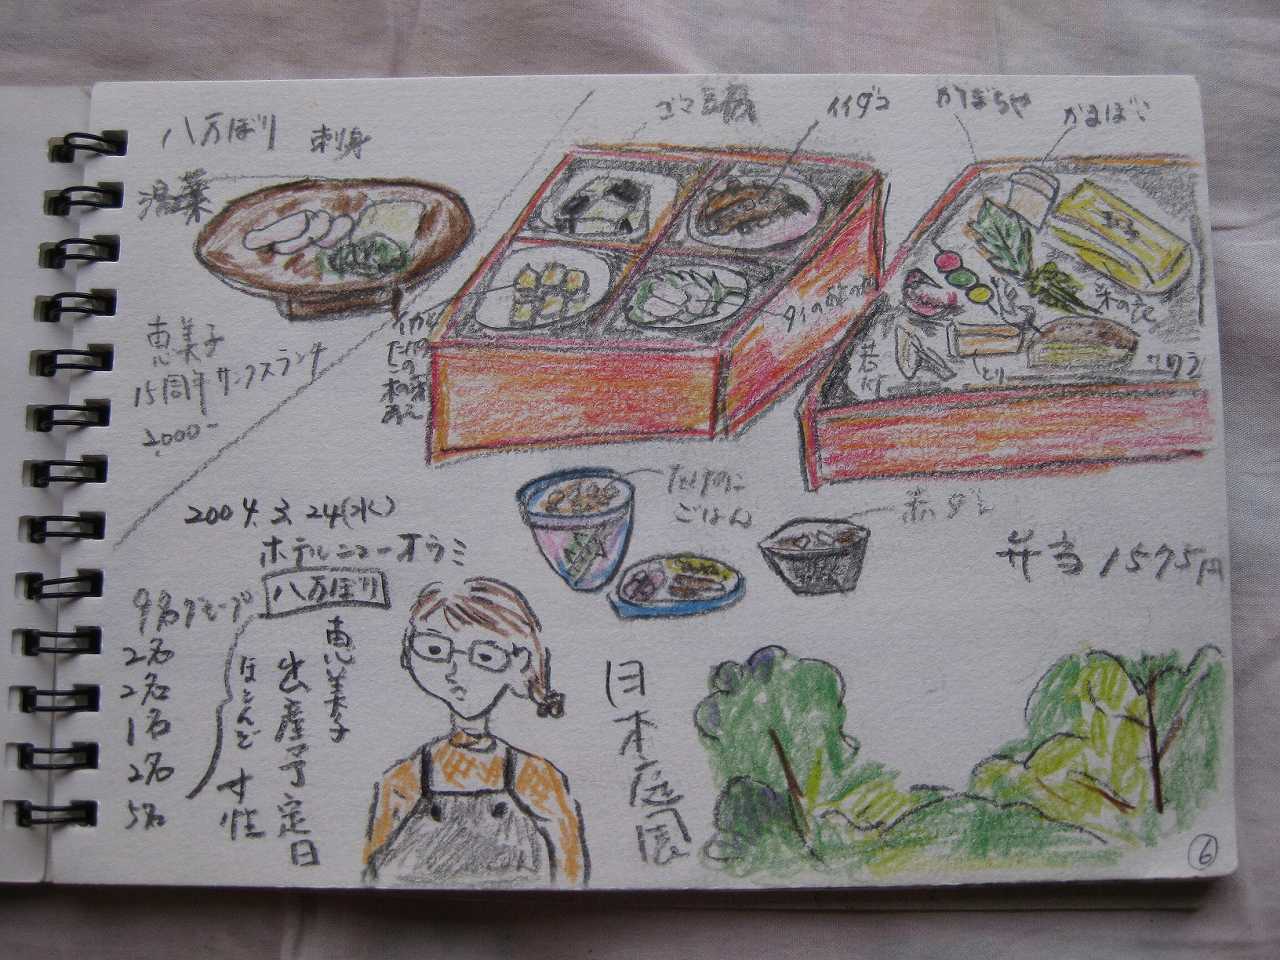 八万ぼり 刺身
イイダコ
かぼちゃ
かまぼこ
恵美子
15周年サンクスランチ
2,000-
イカと
たけの
この
木の芽
あえ
菜の花
若竹
とり
サワラ
たけのこ
ごはん
赤ダシ
弁当 1575円
2004.3.24(水)
ホテルニューオウミ
八万ぼり
9名グループ
2名
2名
1名
2名
5名
ほとんど
恵美子
出産予定日
日本庭園
6